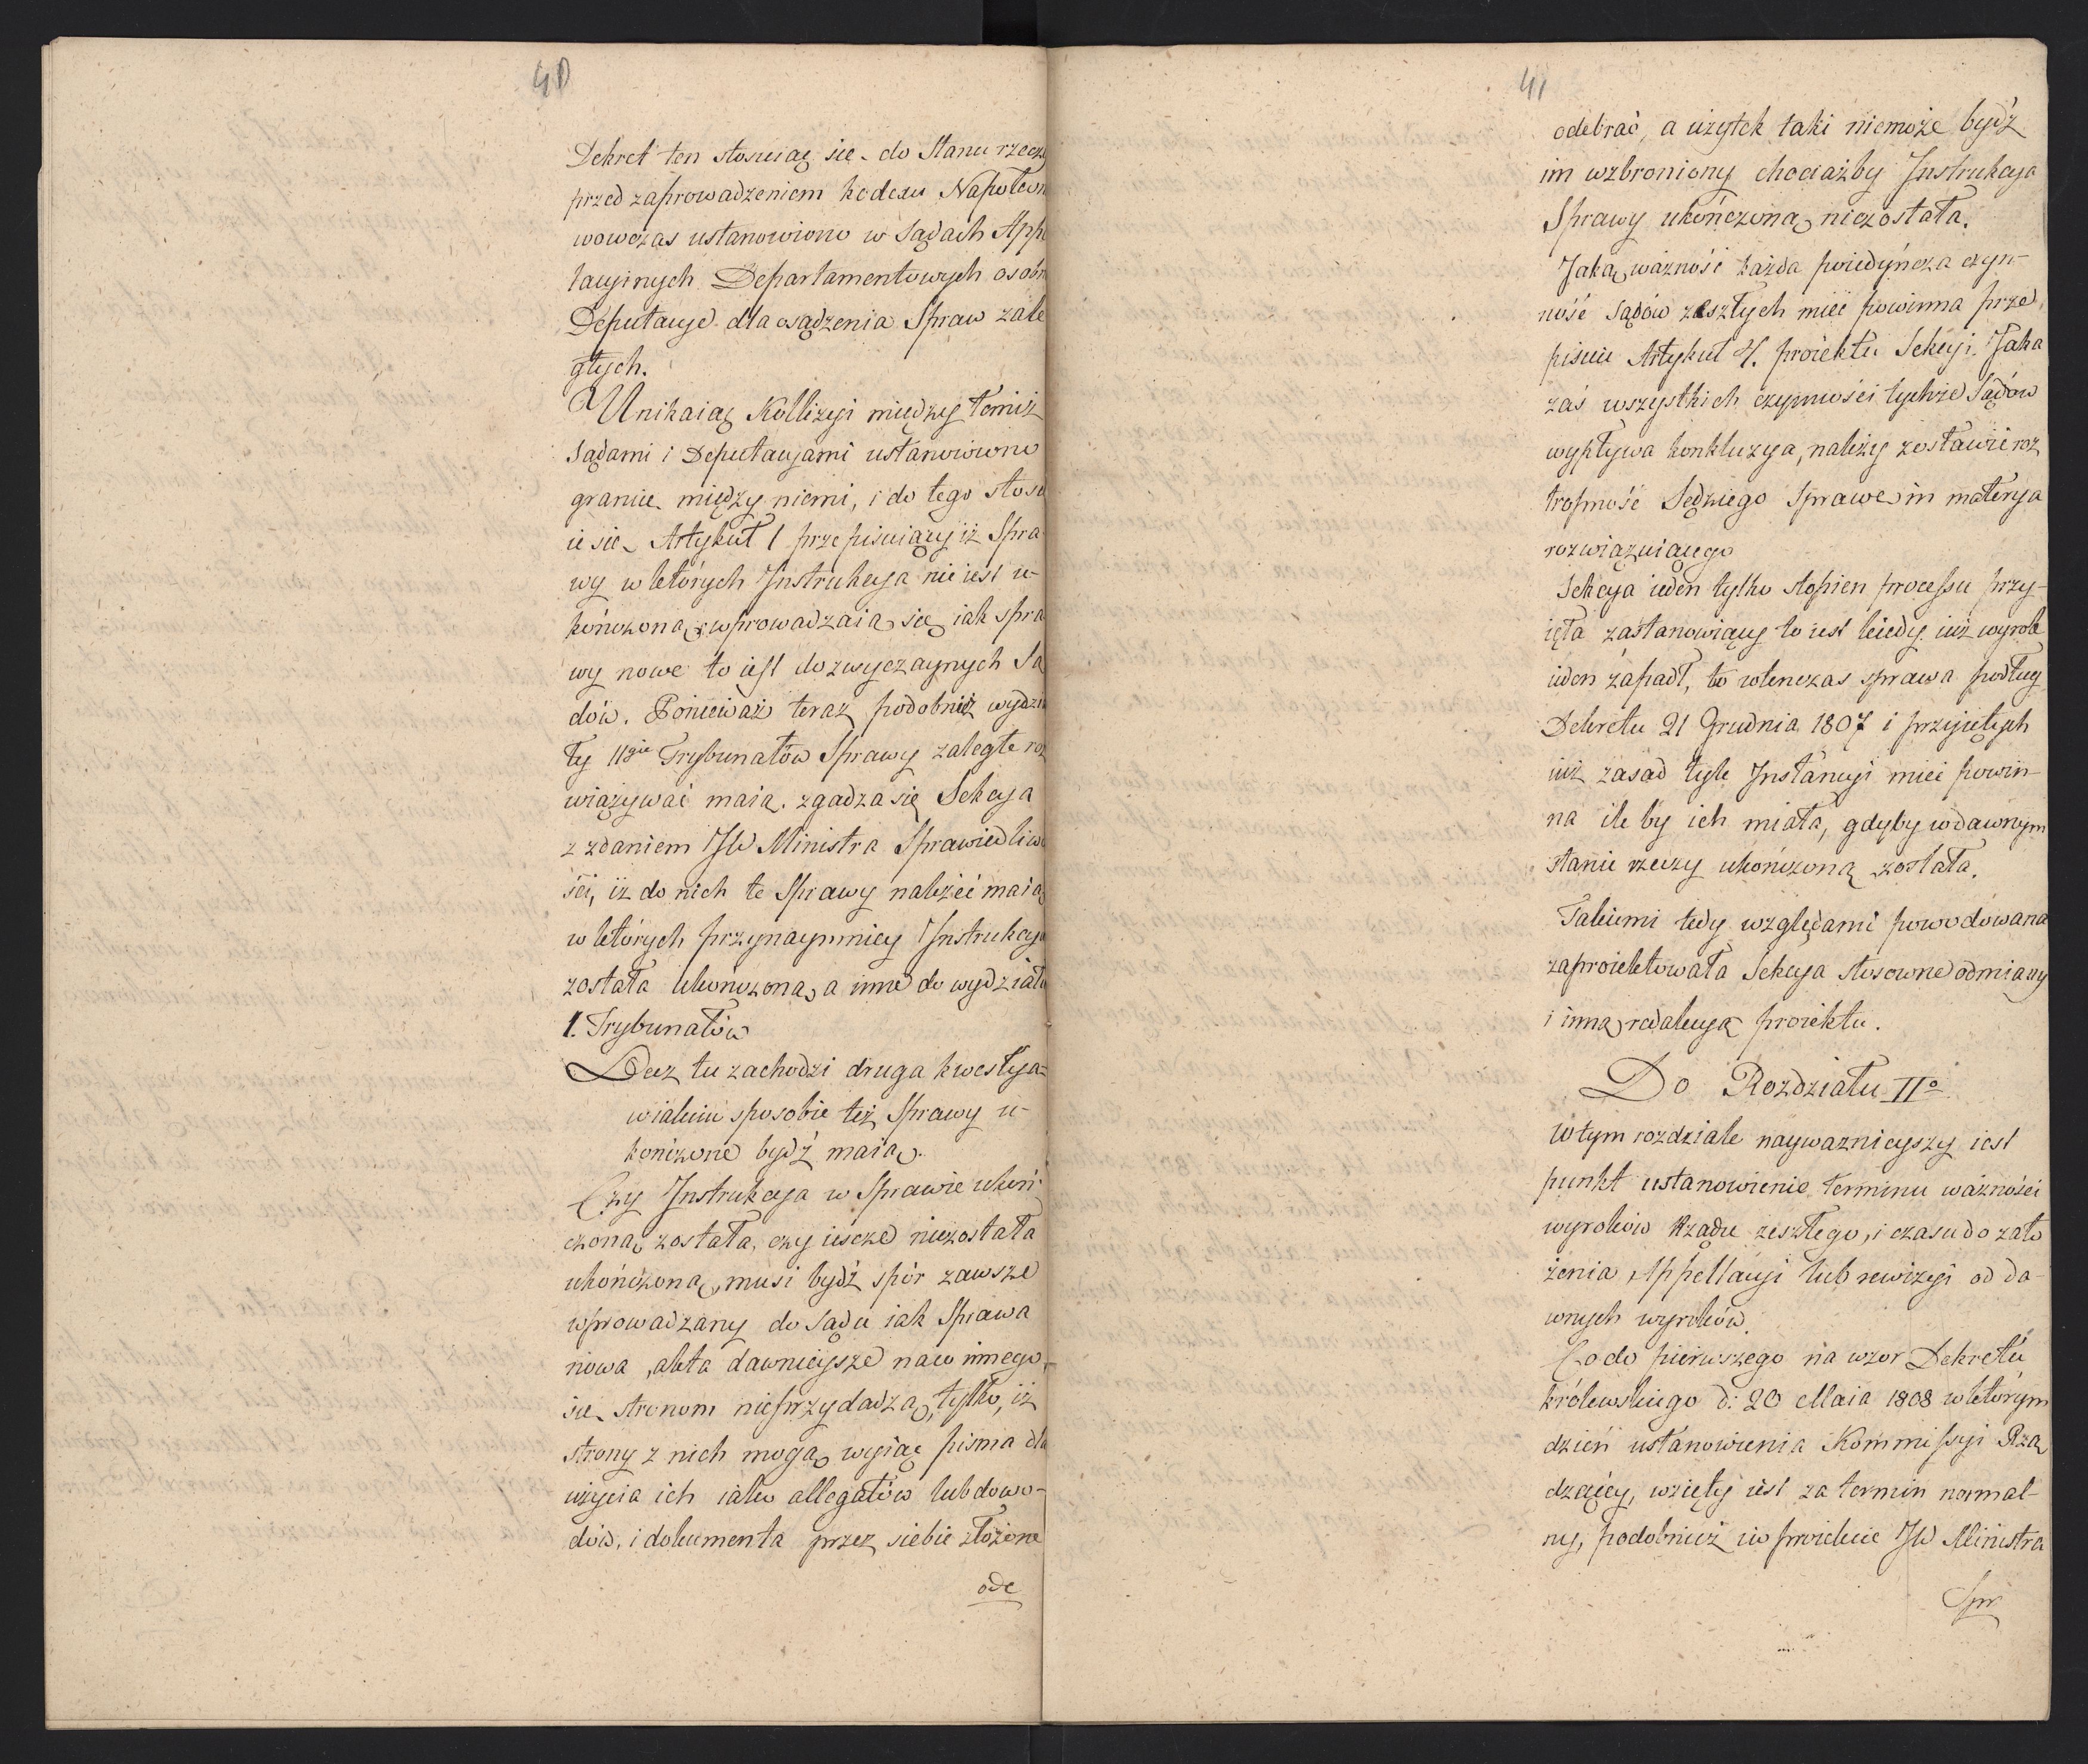 40
Dekret ten stosuiąc się do Stanu rzeczy
przed zaprowadzeniem kodexu Napoleon
wowczas ustanowiono w Sądach Appe
lacyinych Departamentowych osobn
Deputacye dla osądzenia Spraw zale
głych.
Unikaiąc Kollizyi między temiż
Sądami i Deputacyami ustanowiono
granice między niemi, i do tego stosu
ie się Artykuł 1 przepisuiący iż Spra
wy w których Instrukcya nie iest u-
kończona, wprowadzaią się iak spra
wy nowe to iest do zwyczaynych Są
dów. Ponieważ teraz podobnież wydzia
ły IIgie Trybunałów Sprawy zaległe roz
wiązywać maią. zgadza się Sekcya
z zdaniem JW Ministra Sprawiedliwo
ści, iż do nich te Sprawy należeć maią
w których przynaymniey Instrukcya
została ukończona, a inne do wydziału
1. Trybunałów
Lecz tu zachodzi druga kwestya
w iakim sposobie też Sprawy u-
kończone bydź maią.
Czy Instrukcya w Sprawie ukoń-
czoną została, czy ieszcze niezostała
ukończoną, musi bydź spór zawsze
wprowadzany do Sądu iak Sprawa
nowa, akta dawnieysze na co innego
się stronom nieprzydadzą, tylko, iż
strony z nich mogą wyiąć pisma dla
użycia ich iako allegatów lub dowo-
dów, i dokumenta przez siebie złożone
ode
41
odebrać, a użytek taki niemoże bydź
im wzbroniony chociażby Instrukcya
Sprawy ukończoną niezostała.
Jaką ważność każda poiedyńcza czyn-
ność Sądów zeszłych mieć powinna prze
pisuie Artykuł 4. proiektu Sekcyi. Jaka
zaś wszystkich czynności tychże Sądów
wypływa konkluzya, należy zostawić roz
tropność Sędziego Sprawę in materya
rozwiązuiącego
Sekcya ieden tylko stopien processu przy-
ięła zastanowiący to iest kiedy iuż wyrok
ieden zapadł, to wtenczas sprawa podług
Dekretu 21 Grudnia 1807 i przyiętych
iuż zasad tyle Instancyi mieć powin-
na ile by ich miała, gdyby w dawnym
stanie rzeczy ukończoną została.
Takiemi tedy względami powodowana
zaproiektowała Sekcya stosowne odmiany
i inną redakcyą proiektu.
Do Rozdziału IIo
W tym rozdziale nayważnieyszy iest
punkt ustanowienie terminu ważności
wyroków Rządu zeszłego, i czasu do zało
żenia Appellacyi lub rewizyi od da-
wnych wyroków.
Co do pierwszego na wzor Dekretu
królewskiego d: 20 Maia 1808 w którym
dzień ustanowienia Kommissyi Rzą
dzącey, wzięty iest za termin normal-
ny, podobnież i w proiekcie JW Ministra
Spr